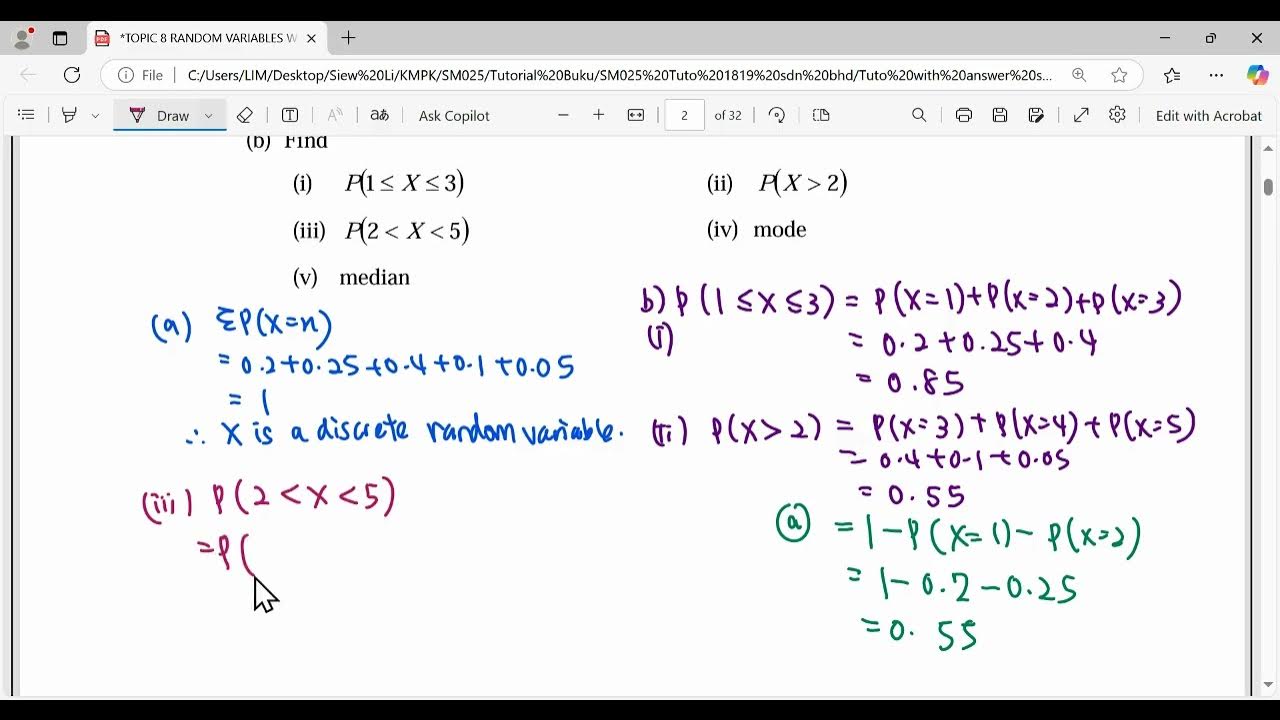 *TOPIC 8 RANDOM VARIABLES W
File
C:/Users/LIM/Desktop/Siew%20Li/KMPK/SM025/Tutorial%20Buku/SM025%20Tuto%201819%20sdn%20bhd/Tuto%20with%20answer%20s...
Draw
aあ
Ask Copilot
2
of 32
Edit with Acrobat
(b) Find
(i) P(1 ≤ X ≤ 3)
(ii) P(X > 2)
(iii) P(2 < X < 5)
(iv) mode
(v) median
(a) ΣP(X=x)
= 0.2+0.25+0.4+0.1+0.05
= 1
∴ X is a discrete random variable.
b) P(1 ≤ X ≤ 3) = P(X=1)+P(X=2)+P(X=3)
(i)
= 0.2+0.25+0.4
= 0.85
(ii) P(X > 2) = P(X=3)+P(X=4)+P(X=5)
= 0.4+0.1+0.05
= 0.55
(a) = 1-P(X=1)-P(X=2)
= 1-0.2-0.25
= 0.55
(iii) P(2 < X < 5)
=P(